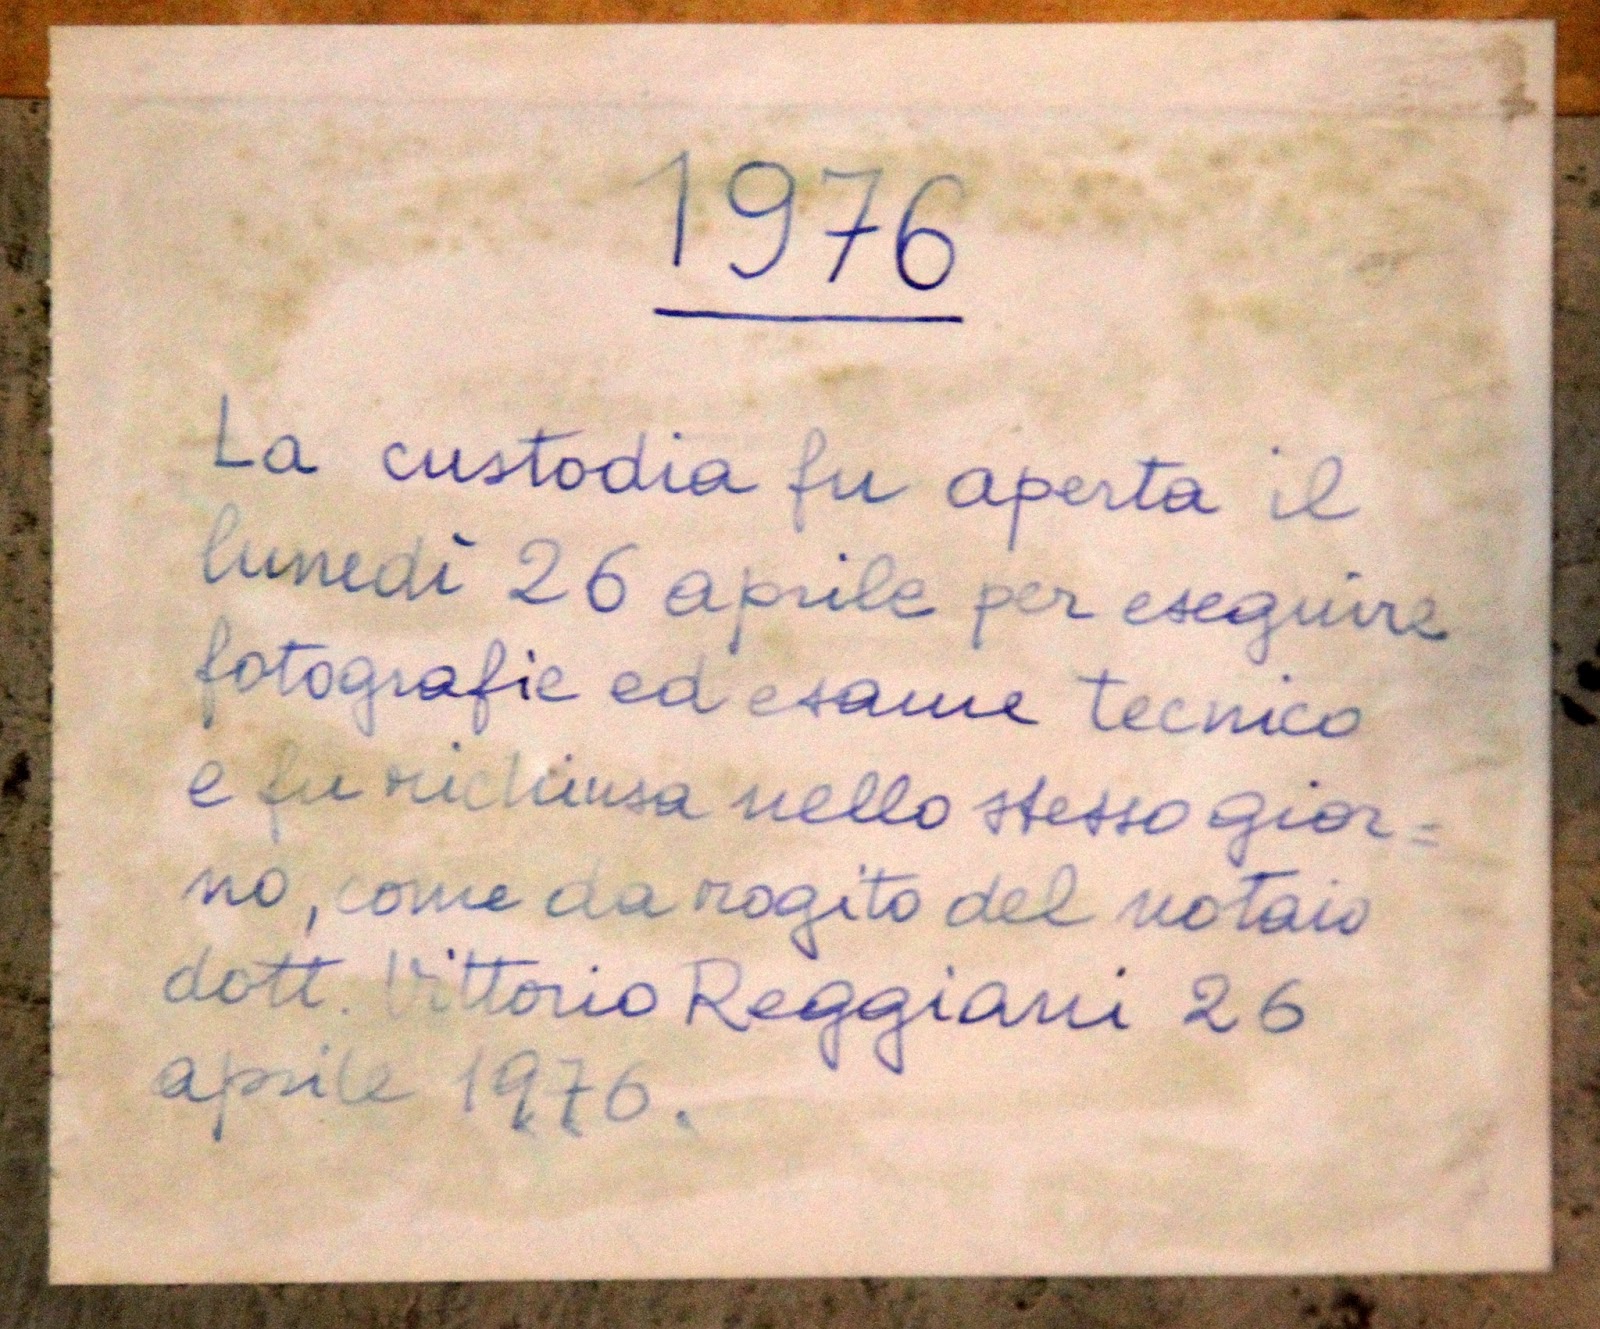 1976
La custodia fu aperta il
lunedì 26 aprile per eseguire
fotografie ed esame tecnico
e fu richiusa nello stesso gior=
no, come da rogito del notaio
dott. Vittorio Reggiani 26
aprile 1976.